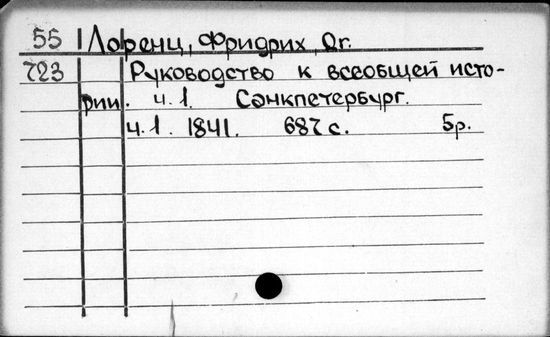 55 Лоренц, Фридрих, Dr.
723 Руководство к всеобщей исто-
рии. ч.1. Санкпетербург.
ч.1. 1841. 687 с. 5р.